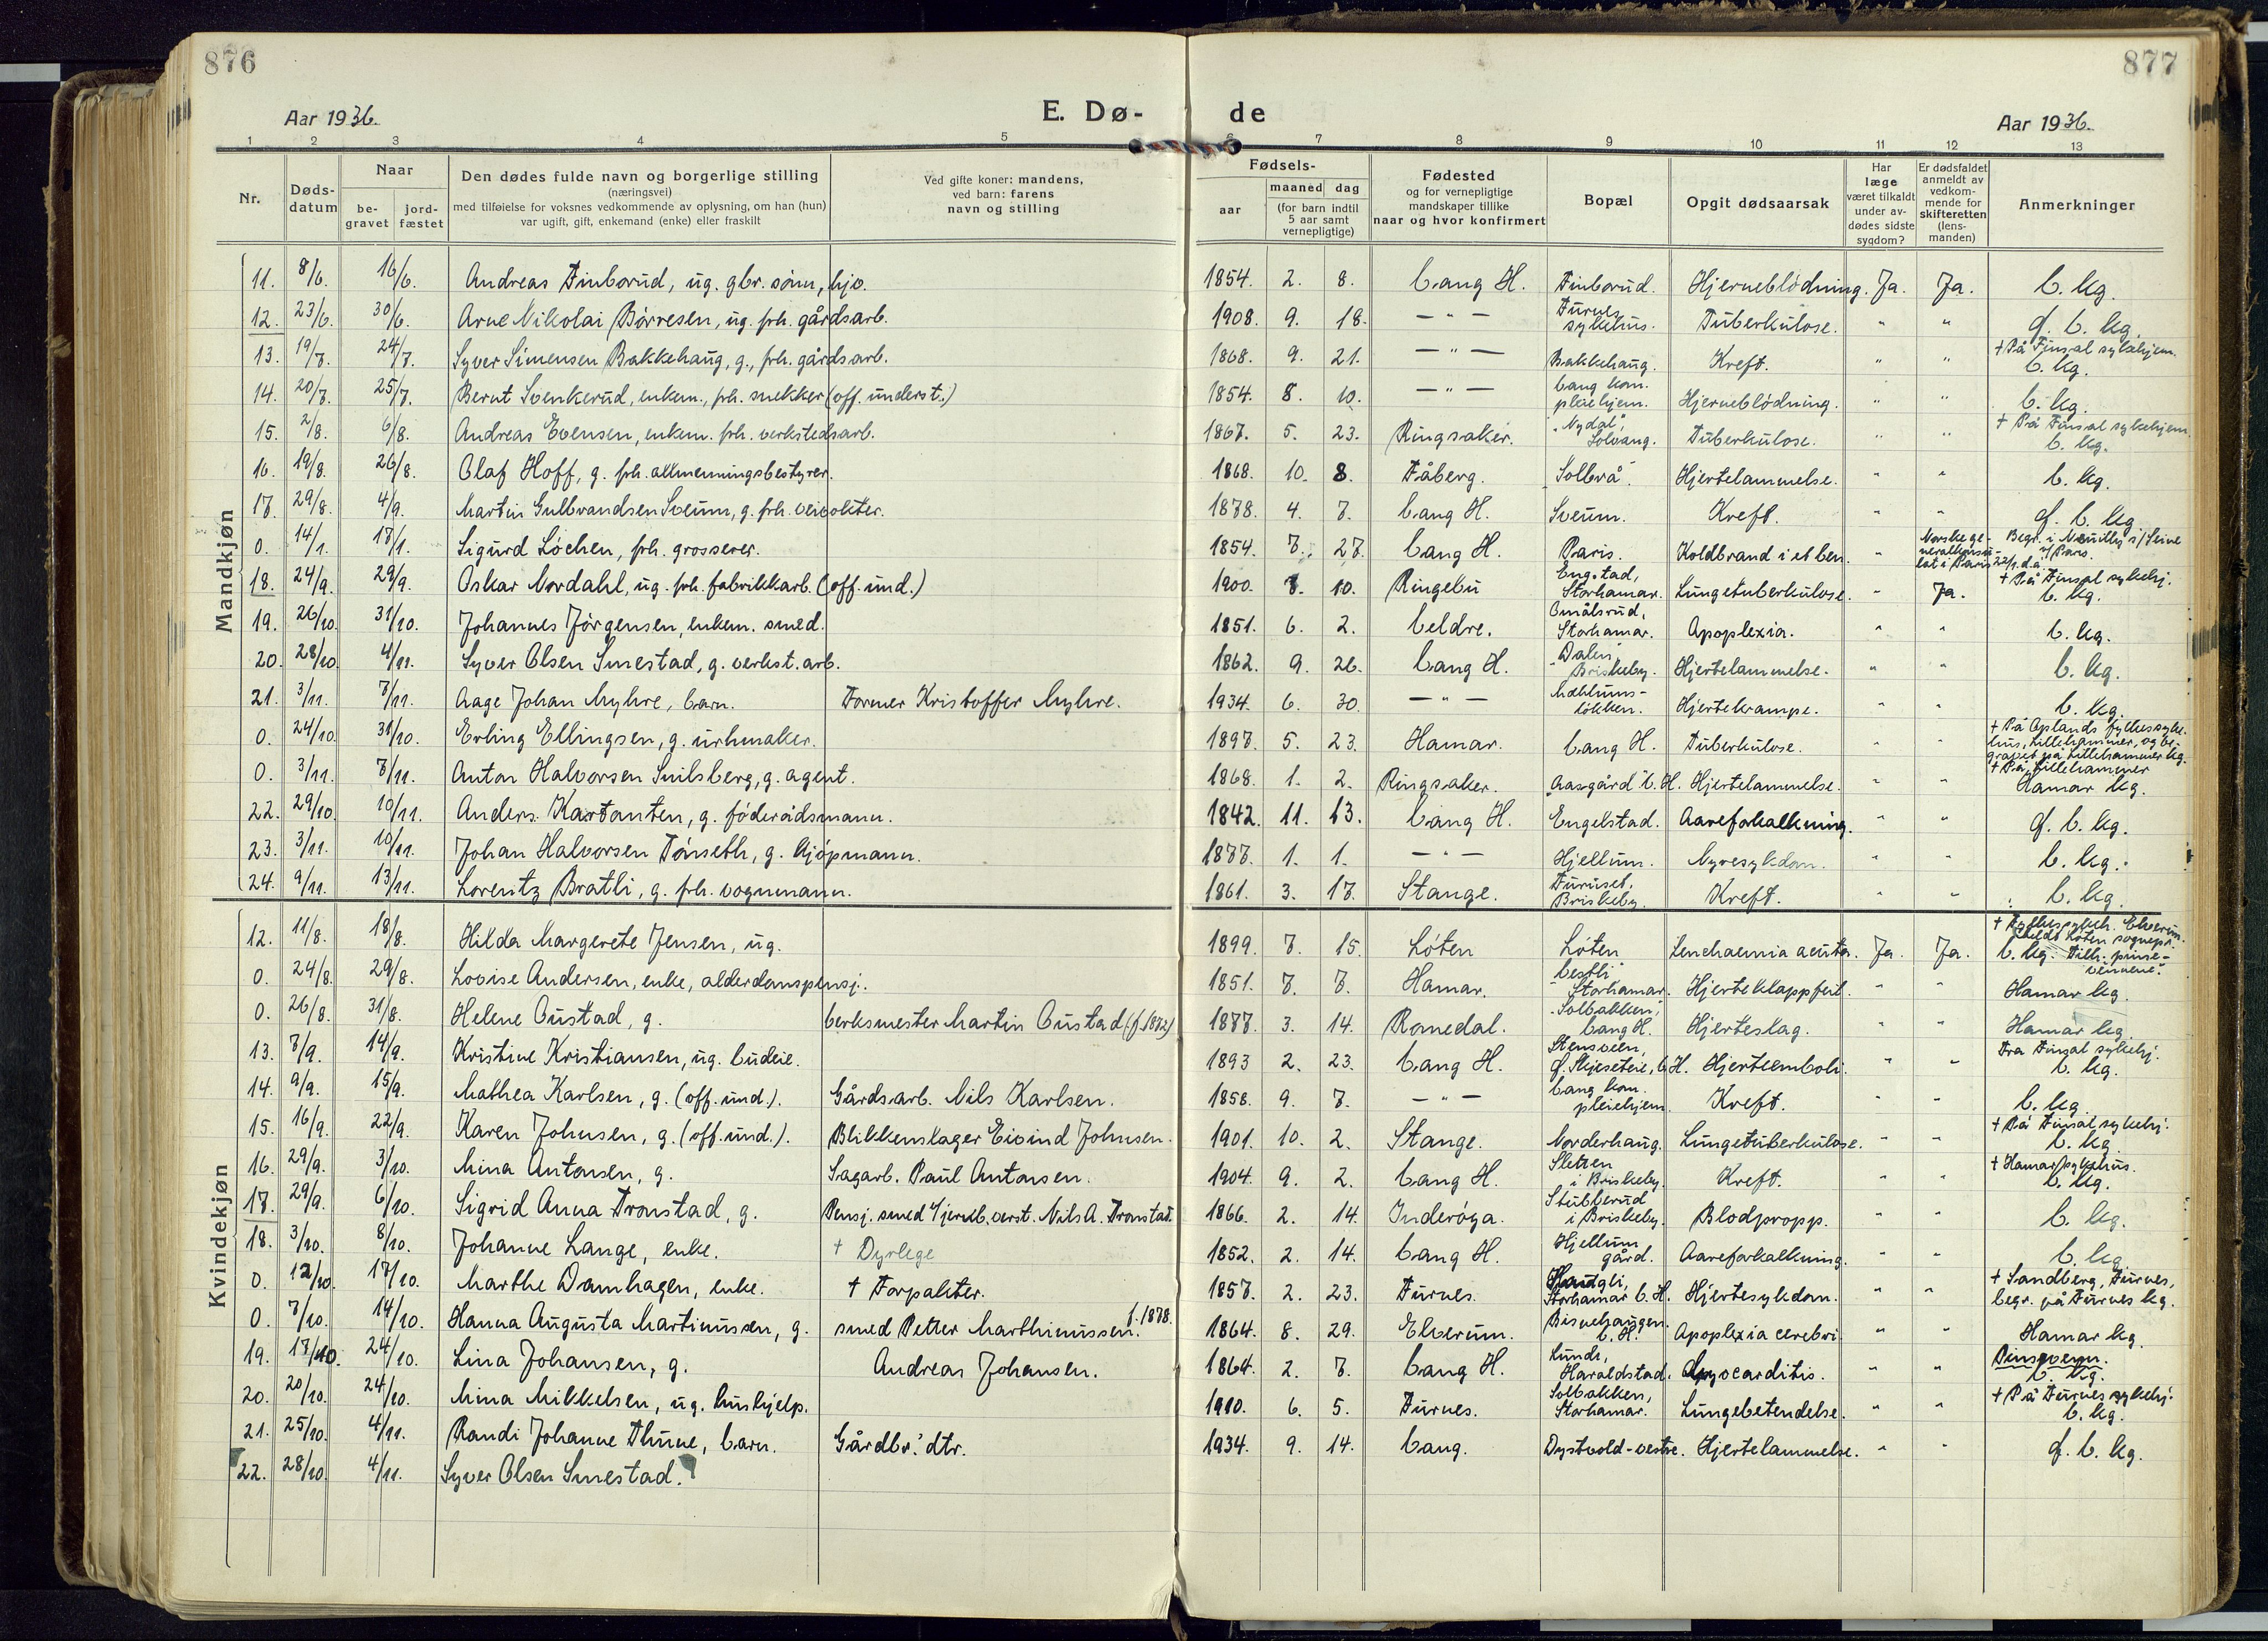 876
877
Aar 1936.
E. Dø- de
Aar 1936.
1 2 3 4 5 6 7 8 9 10 11 12 13
Nr.
Døds-
datum
Naar
be-
gravet
jord-
fæstet
Den dødes fulde navn og borgerlige stilling
(næringsvei)
med tilføielse for voksnes vedkommende av oplysning, om han (hun)
var ugift, gift, enkemand (enke) eller fraskilt
Ved gifte koner: mandens,
ved barn: farens
navn og stilling
Fødsels-
aar
maaned dag
(for barn indtil
5 aar samt
vernepligtige)
Fødested
og for vernepligtige
mandskaper tillike
naar og hvor konfirmert
Bopæl
Opgit dødsaarsak
Har
læge
været tilkaldt
under av-
dødes sidste
sygdom?
Er dødsfaldet
anmeldt av
vedkom-
mende for
skifteretten
(lens-
manden)
Anmerkninger
Mandkjøn
11. 8/6. 16/6. Andreas Finborud, ug. gbr. sønn, hjo. 1854. 2. 8. Vang H. Finborud. Hjerneblødning. Ja. Ja. V. kg.
12. 23/6. 30/6. Arne Nikolai Børresen, ug. frh. gårdsarb. 1908. 9. 18. — " — Furnes sykehus. Tuberkulose. " " g. V. kg.
13. 19/7. 24/7. Syver Simensen Bakkehaug, g., frh. gårdsarb. 1868. 9. 21. — " — Bakkehaug. Kreft. " " + På Finsal sykehjem. V. kg.
14. 20/7. 25/7. Bernt Svenkerud, enkem., frh. snekker (off. underst.) 1854. 8. 10. — " — Vang kom. pleiehjem. Hjerneblødning. " " V. kg.
15. 2/8. 6/8. Andreas Evensen, enkem. frh. verkstedsarb. 1867. 5. 23. Ringsaker. "Nydal", Solvang. Tuberkulose. " " + På Finsal sykehjem. V. kg.
16. 19/8. 26/8. Olaf Hoff, g. frh. allmenningsbestyrer. 1868. 10. 8. Fåberg. "Solbrå". Hjertelammelse. " " V. kg.
17. 29/8. 4/9. Martin Gulbrandsen Sveum, g. frh. veivokter. 1878. 4. 7. Vang H. Sveum. Kreft. " " g. V. kg.
0. 14/1. 17/1. Sigurd Lochen, frh. grosserer. 1854. 7. 27. Vang H. Paris. Koldbrand i et ben. " Norske generalkonsulat i Paris 22/1. d.å. Begr. i Neuilly s/Seine v/Paris.
18. 24/9. 29/9. Oskar Nordahl, ug. frh. fabrikkarb. (off. und.) 1900. 7. 10. Ringebu Engstad, Storhamar. Lungetuberkulose. " Ja. + På Finsal sykehj. V. kg.
19. 26/10. 31/10. Johannes Jørgensen, enkem. smed. 1851. 6. 2. Veldre. Omålsrud, Storhamar. Apoplexia. " " V. kg.
20. 28/10. 4/11. Syver Olsen Smestad, g. verkst. arb. 1862. 9. 26. Vang H. "Dalen" Briskeby. Hjertelammelse. " " V. kg.
21. 3/11. 7/11. Aage Johan Myhre, barn. Former Kristoffer Myhre. 1934. 6. 30. — " — Mæhlumsløkken. Hjertekrampe. " " V. kg.
0. 24/10. 31/10. Erling Ellingsen, g. urhmaker. 1897. 5. 23. Hamar. Vang H. Tuberkulose. " " + På Oplands fylkessykehus, Lillehammer, og begravet på Lillehammer kg.
0. 3/11. 7/11. Anton Halvorsen Snilsberg, g. agent. 1868. 1. 2. Ringsaker. "Aasgård" V. H. Hjertelammelse. " " + På Lillehammer Hamar kg.
22. 29/10. 10/11. Anders Kartanten, g. føderådsmann. 1842. 11. 13. Vang H. Engelstad. Aareforkalkning. " " g. V. kg.
23. 3/11. 10/11. Johan Halvorsen Tønseth, g. kjøpmann. 1877. 1. 1. — " — Hjellum. Nyresykdom. " " V. kg.
24. 9/11. 13/11. Lorentz Bratli, g. frh. vognmann. 1861. 3. 17. Stange. Furuset, Briskeby. Kreft. " " V. kg.
Kvindekjøn
12. 11/8. 18/8. Hilda Margrete Jensen, ug. 1899. 7. 15. Løten Løten Leuchaemia acuta. Ja. Ja. + Fylkessykeh. Elverum. Løten sognepr. V. kg. Tilh. pinsevennene.
0. 24/8. 29/8. Lovise Andersen, enke, alderdomspensj. 1851. 7. 7. Hamar. Vestli Storhamar. Hjerteklappfeil. " " Hamar kg.
0. 26/8. 31/8. Helene Gustad, g. Verksmester Martin Gustad (f. 1872) 1877. 3. 14. Romedal. "Solbakken", Vang H. Hjerteslag. " " Hamar kg.
13. 7/9. 14/9. Kristine Kristiansen, ug. budeie. 1893 2. 23. Vang H. Stensveen, g. Skjeseteie, V. H. Hjerteemboli. " " Fra Finsal sykehj. V. kg.
14. 9/9. 15/9. Mathea Karlsen, g. (off. und.). Gårdsarb. Nils Karlsen. 1858. 9. 7. — " — Vang kom. pleiehjem. Kreft. " " V. kg.
15. 16/9. 22/9. Karen Johnsen, g. (off. und.). Blikkenslager Eivind Johnsen. 1901. 10. 2. Stange. Norderhaug. Lungetuberkulose. " " + På Finsal sykehj. V. kg.
16. 29/9. 3/10. Mina Antonsen, g. Sagarb. Paul Antonsen. 1904. 9. 2. Vang H. Sletten i Briskeby. Kreft. " " + Hamar sykehus. V. kg.
17. 29/9. 6/10. Sigrid Anna Tronstad, g. Pensj. smed v/jernb. verst. Nils A. Tronstad. 1866. 2. 14. Inderøya. Stubberud i Briskeby. Blodpropp. " " V. kg.
18. 3/10. 8/10. Johanne Lange, enke. + Dyrlege 1852. 2. 14. Vang H. Hjellum gård. Aareforkalkning. " " V. kg.
0. 12/10. 17/10. Marthe Damhagen, enke. + Forpakter. 1857. 2. 23. Furnes. Haugli, Storhamar V. H. Hjertesykdom. " " + Sandberg, Furnes, begr. på Furnes kg.
0. 7/10. 14/10. Hanna Augusta Martinussen, g. smed Petter Marthinussen. f. 1878. 1864. 8. 29. Elverum. Bisnehaugen V. H. Apoplexia cerebri " " Hamar kg.
19. 17/10. 24/10. Lina Johansen, g. Andreas Johansen. 1864. 2. 7. Vang H. Lunde, Haraldstad. Myocarditis. " " Pinsevenn. V. kg.
20. 20/10. 24/10. Mina Mikkelsen, ug. hushjelp. 1910. 6. 5. Furnes. Solbakken, Storhamar. Lungebetendelse. " " + På Furnes sykehj. V. kg.
21. 25/10. 4/11. Randi Johanne Thune, barn. Gårdbr.' dtr. 1934. 9. 14. Vang. Dystvold-vestre. Hjertelammelse. " " g. V. kg.
22. 28/10. 4/11. Syver Olsen Smestad.